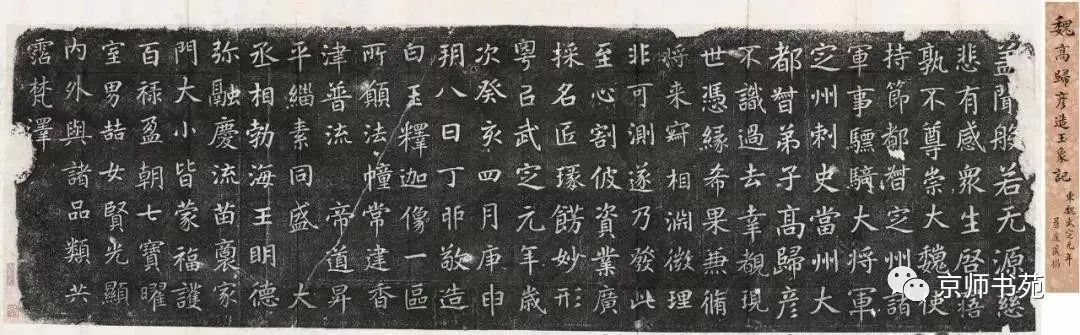 魏高歸彥造玉象記
東魏武定元年
盖聞般若无源慈
悲有感眾生啓悟
孰不尊崇大魏使
持節都督定州諸
軍事驃騎大將軍
定州刺史當州大
都督弟子高歸彥
不識過去幸覩現
世憑緣希果兼脩
將来寂相淵微理
非可測遂乃發此
至心割彼資業廣
採名匠瑑餝妙形
粵以武定元年歲
次癸亥四月庚申
朔八日丁卯敬造
白玉釋迦像一區
所願法幢常建香
津普流帝道昇
平繼素同盛大
丞相勃海王明德
弥融慶流苗裏家
門大小皆蒙福護
百禄盈朝七寶曜
室男喆女賢光顯
内外與諸品類共
霑梵澤
京师书苑